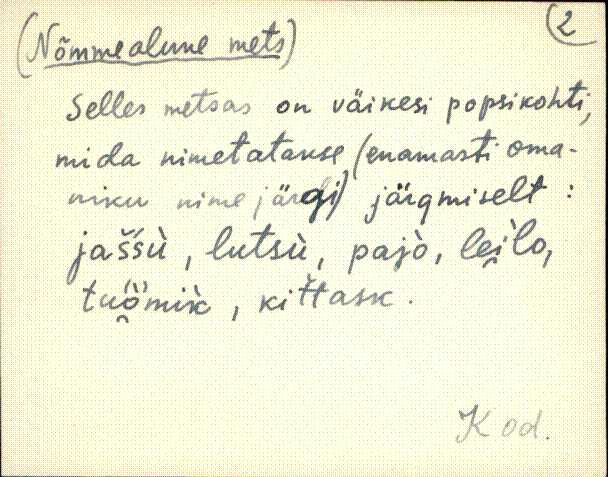 (Nõmmealune mets) (2
Selles metsas on väikesi popsikohti,
mida nimetatakse (enamasti oma-
niku nime järgi) järgmiselt :
jaššù, lutsù, pajò, lei̯lo,
tuö̯mìk, kittask.
Kod.